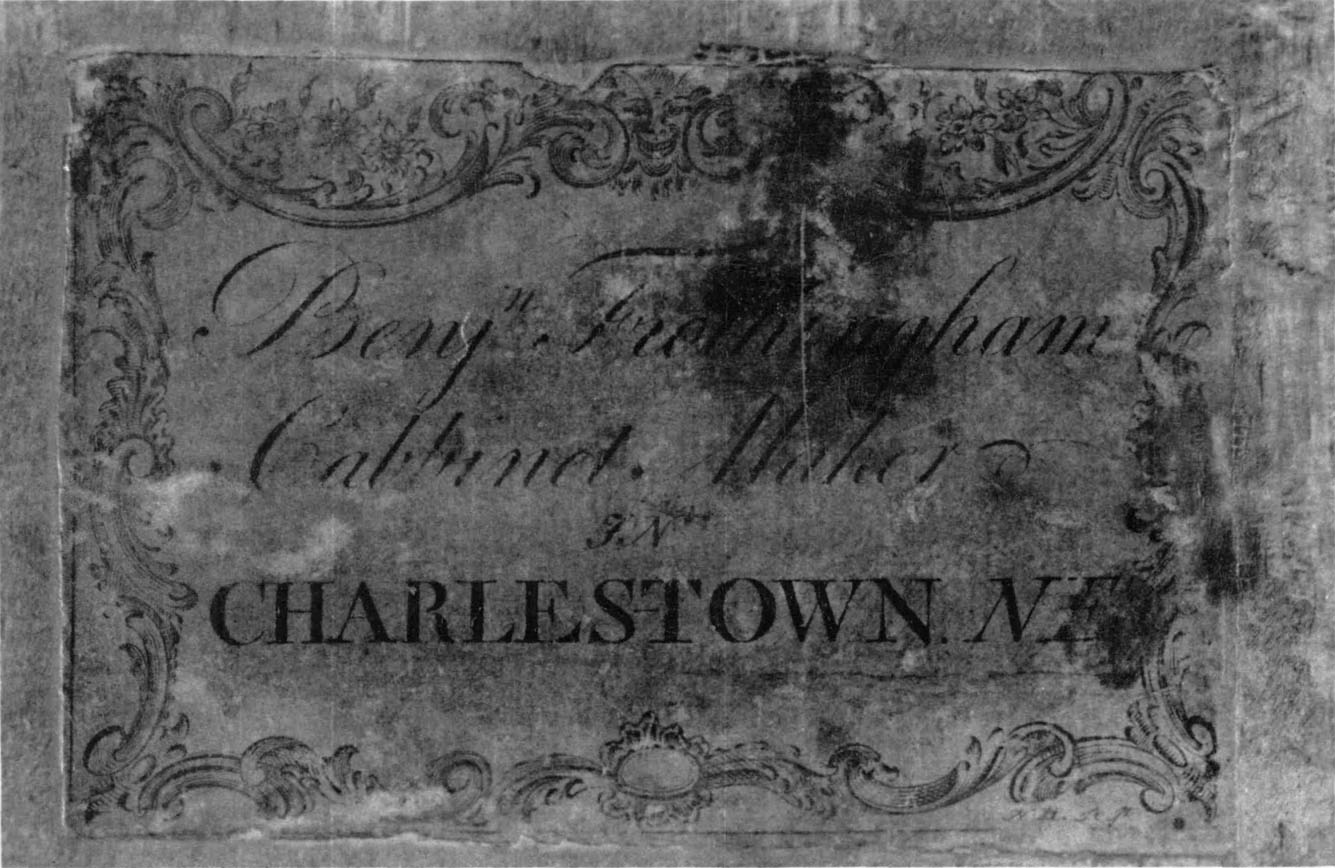 Benjⁿ. Frothingham
Cabbinet. Maker
IN
CHARLESTOWN. NE